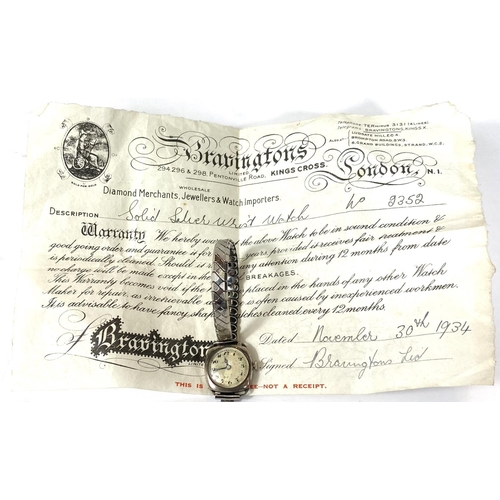 Telephone: TERMINUS 3131 (6 LINES)
Telegrams: BRAVINGTONS, KINGS X.
ALSO AT
LUDGATE HILL, E.C.4.
BROMPTON ROAD, S.W.3.
6, GRAND BUILDINGS, STRAND, W.C.2.
Bravingtons
LIMITED
294, 296 & 298, PENTONVILLE ROAD, KINGS CROSS,
London, N.1.
WHOLESALE
Diamond Merchants, Jewellers & Watch Importers.
DESCRIPTION Solid Silver Wrist Watch No 9352
Warranty We hereby the above Watch to be in sound condition &
good going order and guarantee it for years provided it receives fair treatment &
is periodically cleaned. Should it any attention during 12 months from date
no charge will be made except in the BREAKAGES.
This Warranty becomes void if the placed in the hands of any other Watch
Maker for repair, as irretrievable is often caused by inexperienced workmen.
It is advisable to have fancy shape watches cleaned every 12 months.
Bravingtons Dated November 30th 1934
Signed Bravingtons Ltd
THIS IS NOT A RECEIPT.